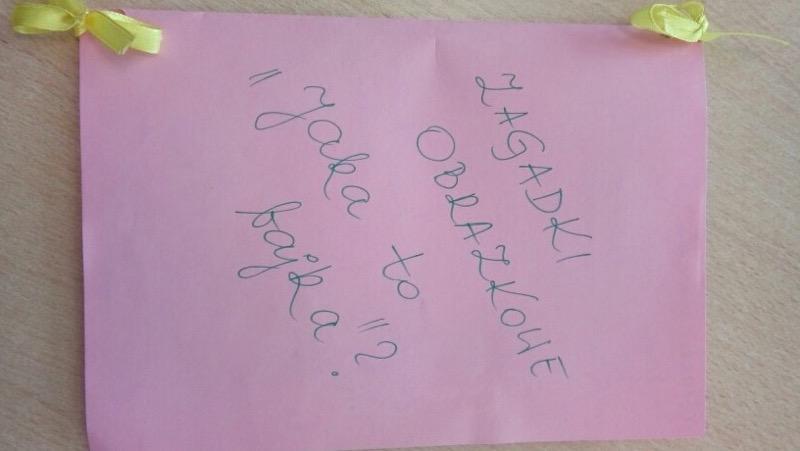 ZAGADKI
OBRAZKOWE
"Jaka to
bajka"?